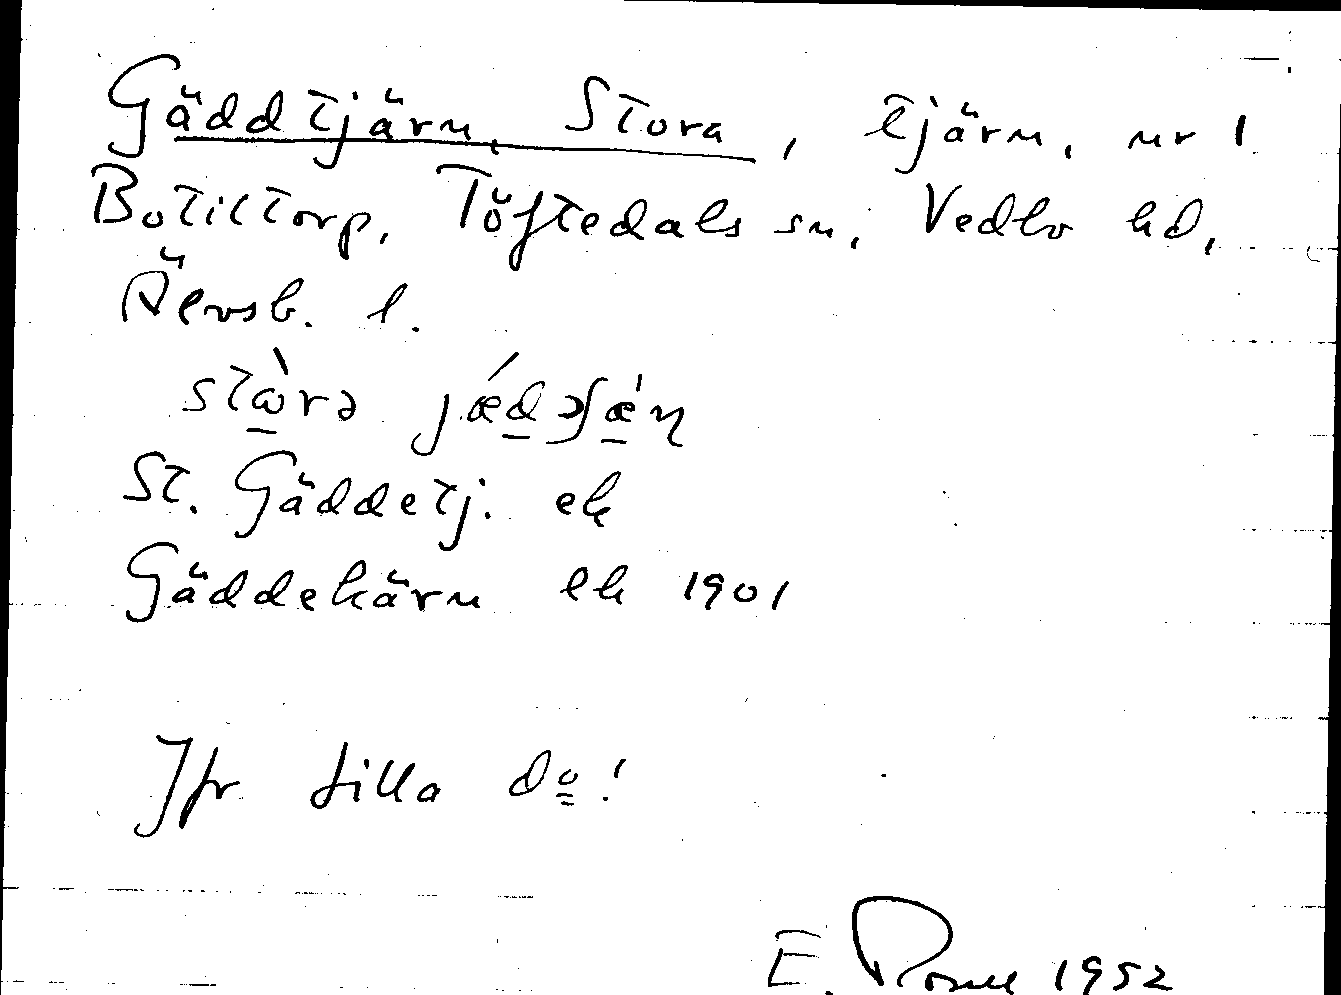 Gäddtjärn, Stora, tjärn, nr 1
Botiltorp, Töftedals sn, Vedbo hd,
Älvsb. l.
stɷ̀rə jǽdəʃæ̀ɳ
St. Gäddetj. ek
Gäddekärn ek 1901
Jfr Lilla do!
E. 1952